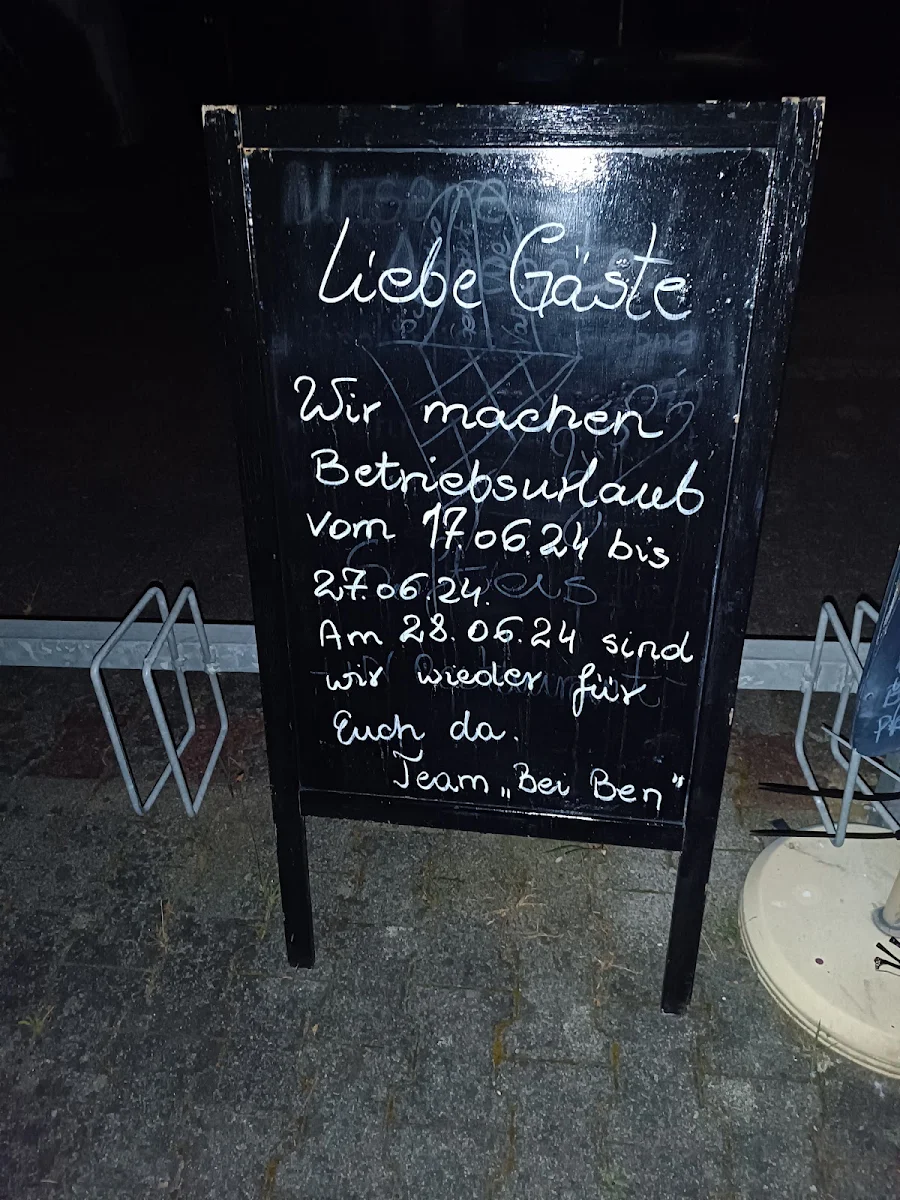 Liebe Gäste
Wir machen
Betriebsurlaub
vom 17.06.24 bis
27.06.24.
Am 28.06.24 sind
wir wieder für
Euch da.
Team „Bei Ben"